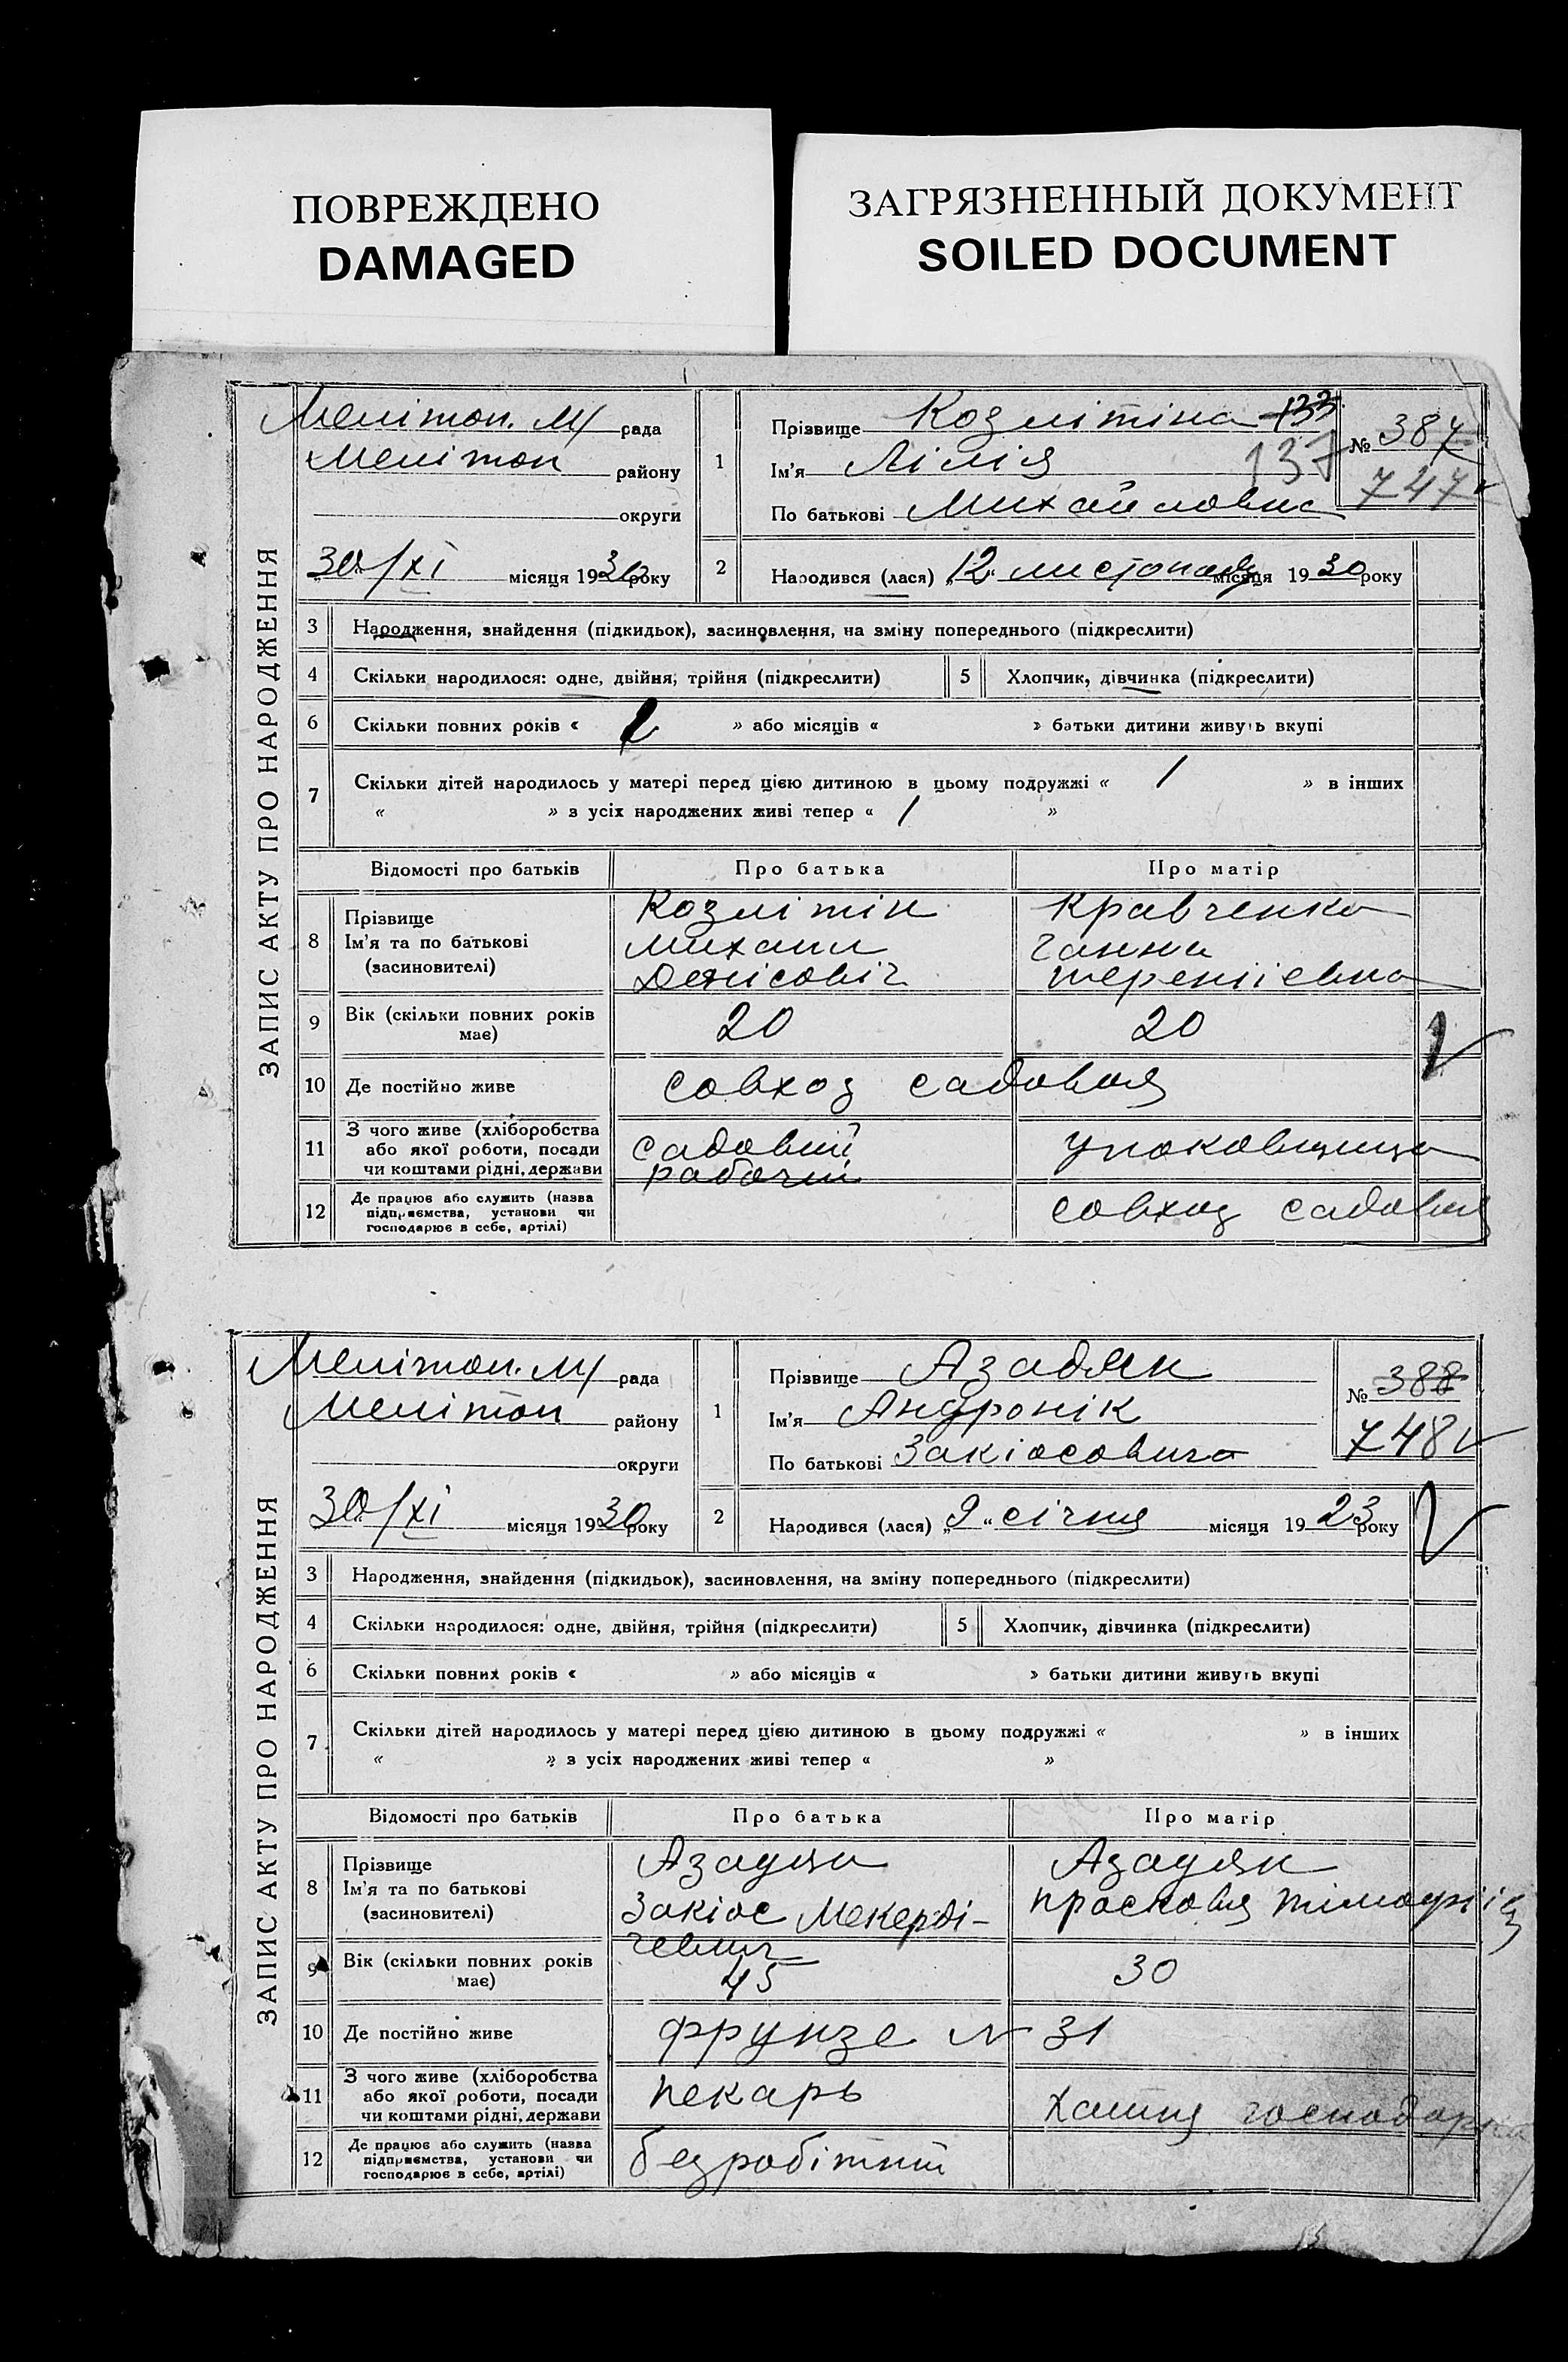 ПОВРЕЖДЕНО
DAMAGED
ЗАГРЯЗНЕННЫЙ ДОКУМЕНТ
SOILED DOCUMENT
ЗАПИС АКТУ ПРО НАРОДЖЕННЯ
Мелітоп. М/ рада
Мелітоп району
округи
30/XI місяця 1930 року
1
Прізвище Козлітіна 133
Ім'я Лілія 137
По батькові Михайловна
№ 387
747
2 Народився (лася) „12“ листопада місяця 1930 року
3 Народження, знайдення (підкидьок), засиновлення, на зміну попереднього (підкреслити)
4 Скільки народилося: одне, двійня, трійня (підкреслити)
5 Хлопчик, дівчинка (підкреслити)
6 Скільки повних років « » або місяців « » батьки дитини живуть вкупі
7 Скільки дітей народилось у матері перед цією дитиною в цьому подружжі « 1 » в інших
« » з усіх народжених живі тепер « 1 »
Відомості про батьків Про батька Про матір
8 Прізвище
Ім'я та по батькові
(засиновителі)
Козлітін
Михаил
Денісовіч
Кравченко
Ганна
Терентіевна
9 Вік (скільки повних років
має)
20 20
10 Де постійно живе совхоз садовая
11 З чого живе (хліборобства
або якої роботи, посади
чи коштами рідні, держави
садовий
рабочий
упаковщица
12 Де працює або служить (назва
підприємства, установи чи
господарює в себе, артілі)
совхоз садовая
ЗАПИС АКТУ ПРО НАРОДЖЕННЯ
Мелітоп. М/ рада
Мелітоп району
округи
30/XI місяця 1930 року
1
Прізвище Азадян
Ім'я Андронік
По батькові Закіосовича
№ 388
748
2 Народився (лася) „9“ січня місяця 1923 року
3 Народження, знайдення (підкидьок), засиновлення, на зміну попереднього (підкреслити)
4 Скільки народилося: одне, двійня, трійня (підкреслити)
5 Хлопчик, дівчинка (підкреслити)
6 Скільки повних років « » або місяців « » батьки дитини живуть вкупі
7 Скільки дітей народилось у матері перед цією дитиною в цьому подружжі « » в інших
« » з усіх народжених живі тепер « »
Відомості про батьків Про батька Про матір
8 Прізвище
Ім'я та по батькові
(засиновителі)
Закіос Мекерді-
чевич
Азадян
Прасковя
9 Вік (скільки повних років
має)
45 30
10 Де постійно живе Фрунзе № 31
11 З чого живе (хліборобства
або якої роботи, посади
чи коштами рідні, держави
пекарь
Хатня господарка
12 Де працює або служить (назва
підприємства, установи чи
господарює в себе, артілі)
безробітний